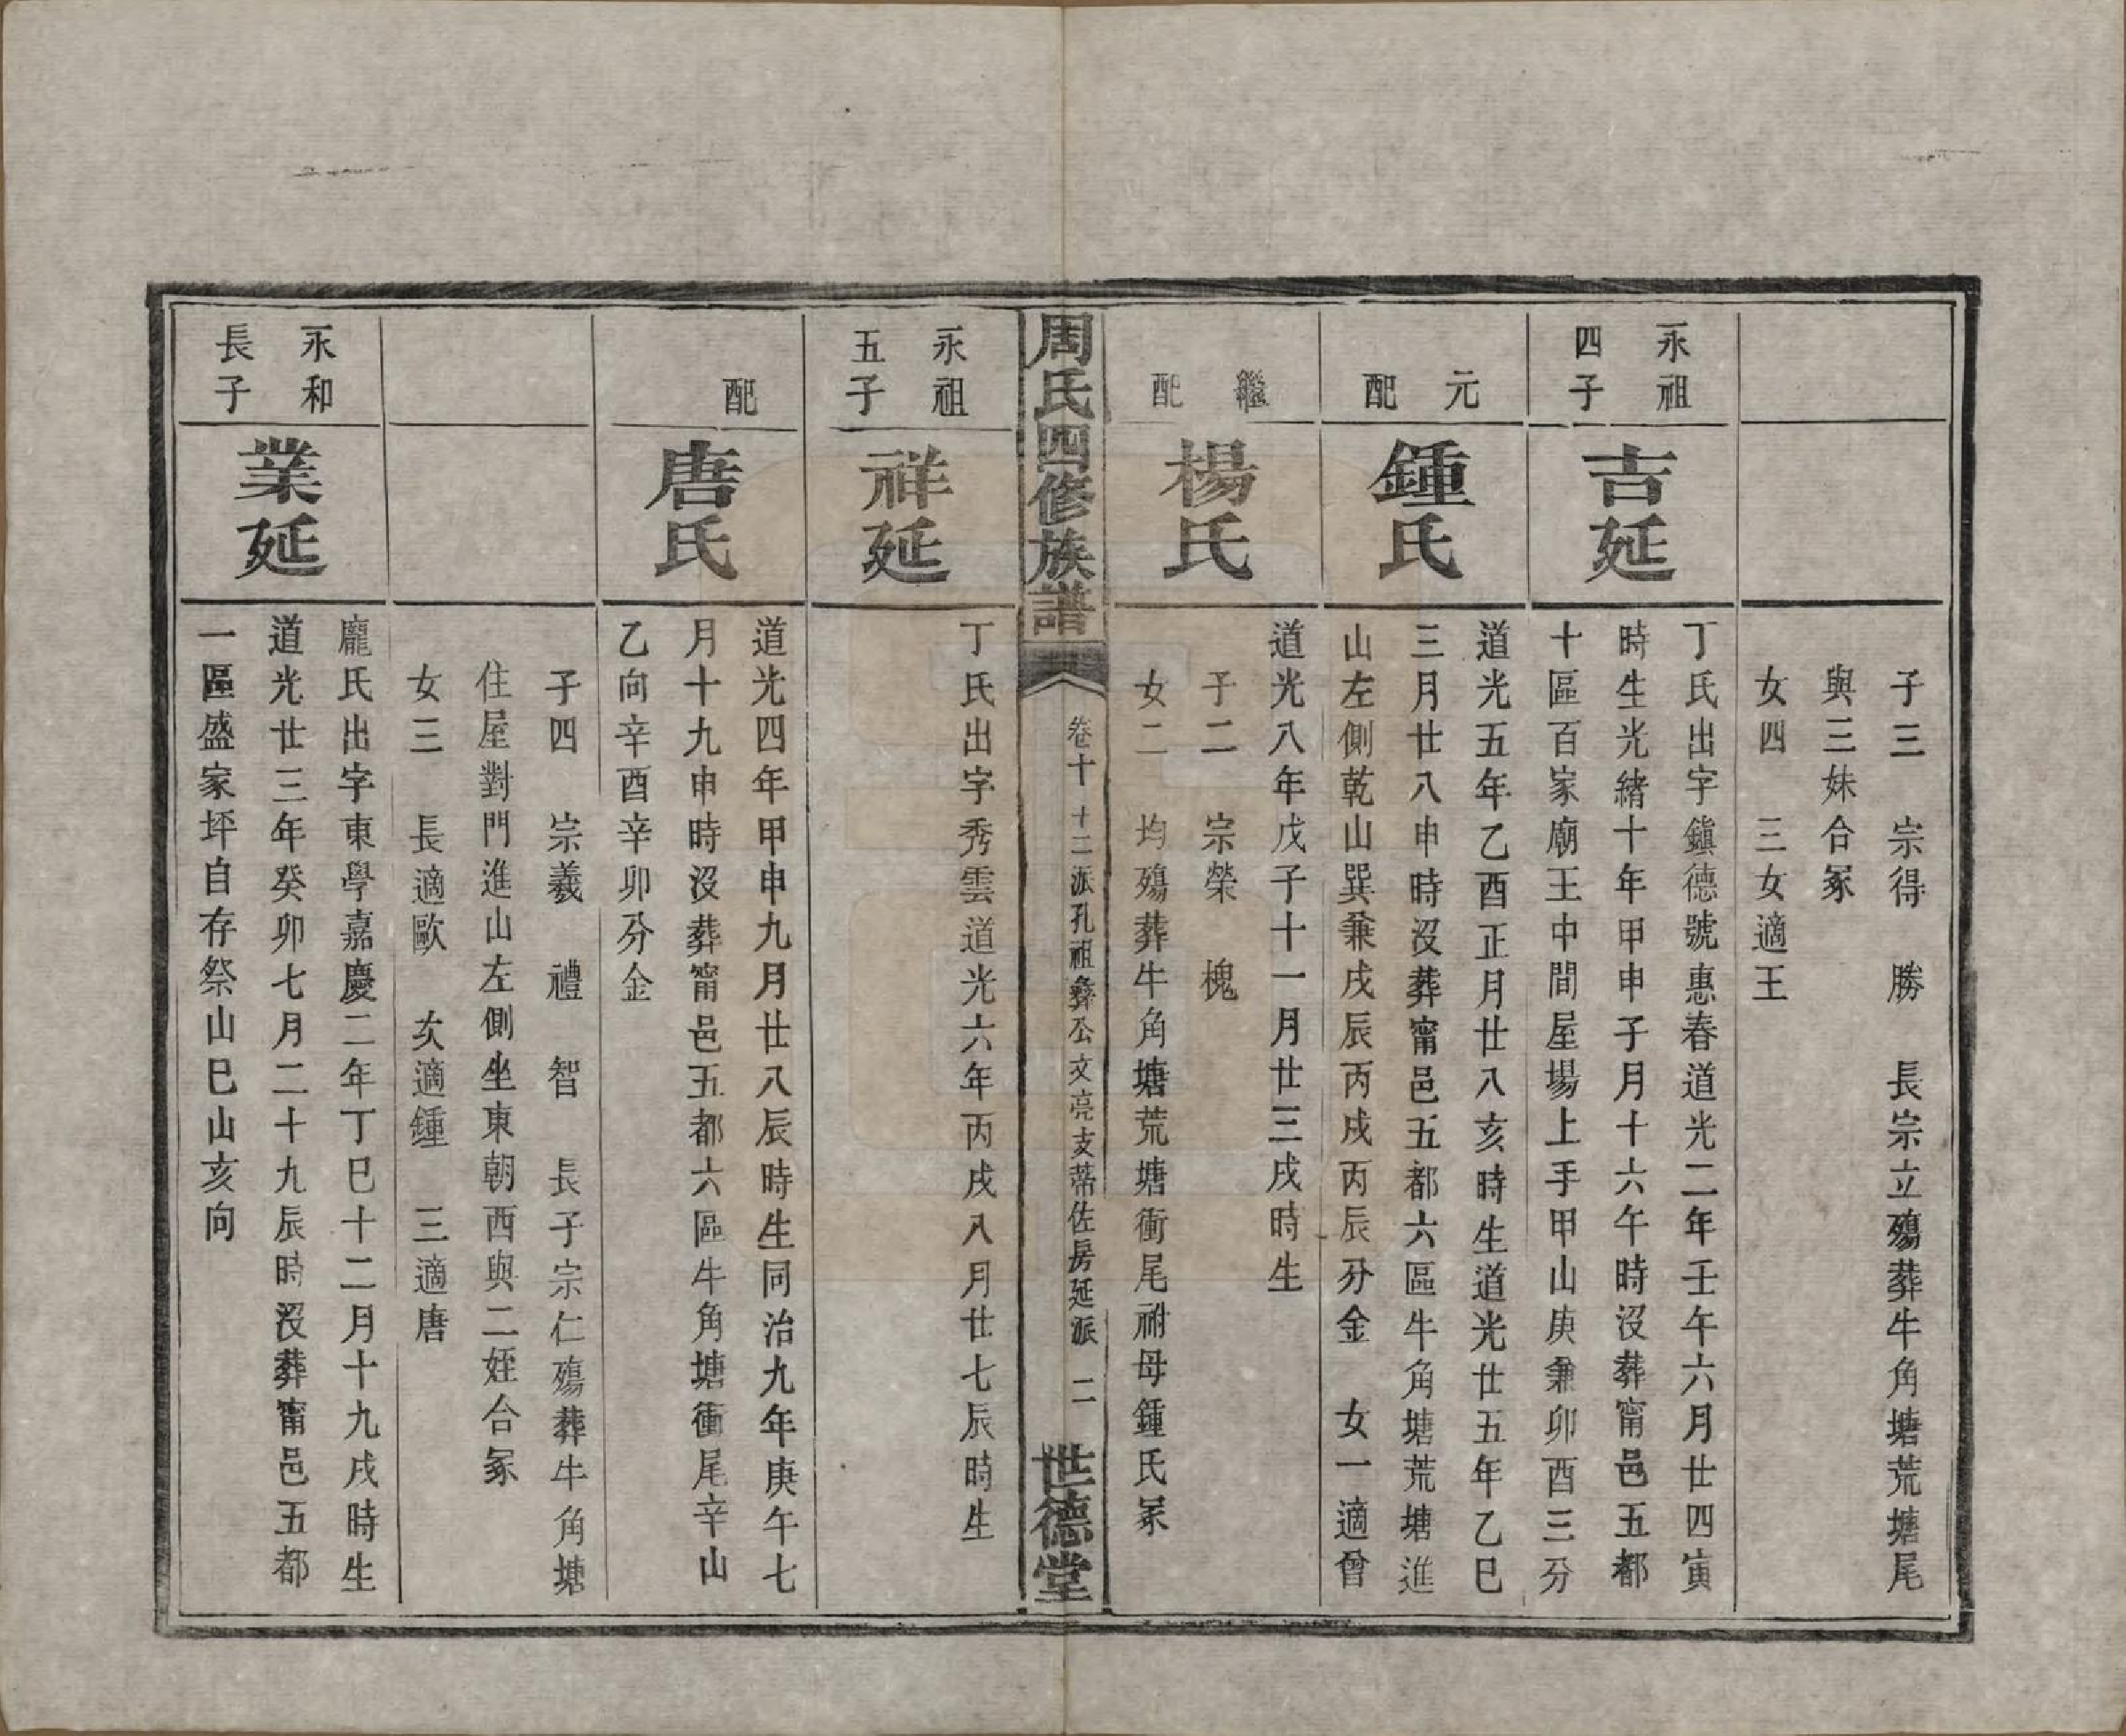 子三　宗得　勝　長宗立殤葬牛角塘荒塘尾
與三妹合冢
女四　三女適王
永祖
四子
吉延
丁氏出字鎮德號惠春道光二年壬午六月廿四寅
時生光緒十年甲申子月十六午時沒葬甯邑五都
十區百家廟王中間屋場上手甲山庚兼卯酉三分
元
配
鍾氏
道光五年乙酉正月廿八亥時生道光廿五年乙巳
三月廿八申時沒葬甯邑五都六區牛角塘荒塘進
山左側乾山巽兼戌辰丙戌丙辰分金　女一適曾
繼
配
楊氏
道光八年戊子十一月廿三戌時生
子二　宗榮　槐
女二　均殤葬牛角塘荒塘衝尾祔母鍾氏冢
周氏四修族譜
卷十　十二派孔祖彝公文亮支蒂佐房延派　二
世德堂
永祖
五子
祥延
丁氏出字秀雲道光六年丙戌八月廿七辰時生
配
唐氏
道光四年甲申九月廿八辰時生同治九年庚午七
月十九申時沒葬甯邑五都六區牛角塘衝尾辛山
乙向辛酉辛卯分金
子四　宗義　禮　智　長子宗仁殤葬牛角塘
住屋對門進山左側坐東朝西與二姪合冢
女三　長適歐　次適鍾　三適唐
永和
長子
業延
龐氏出字東學嘉慶二年丁巳十二月十九戌時生
道光廿三年癸卯七月二十九辰時沒葬甯邑五都
一區盛家坪自存祭山巳山亥向